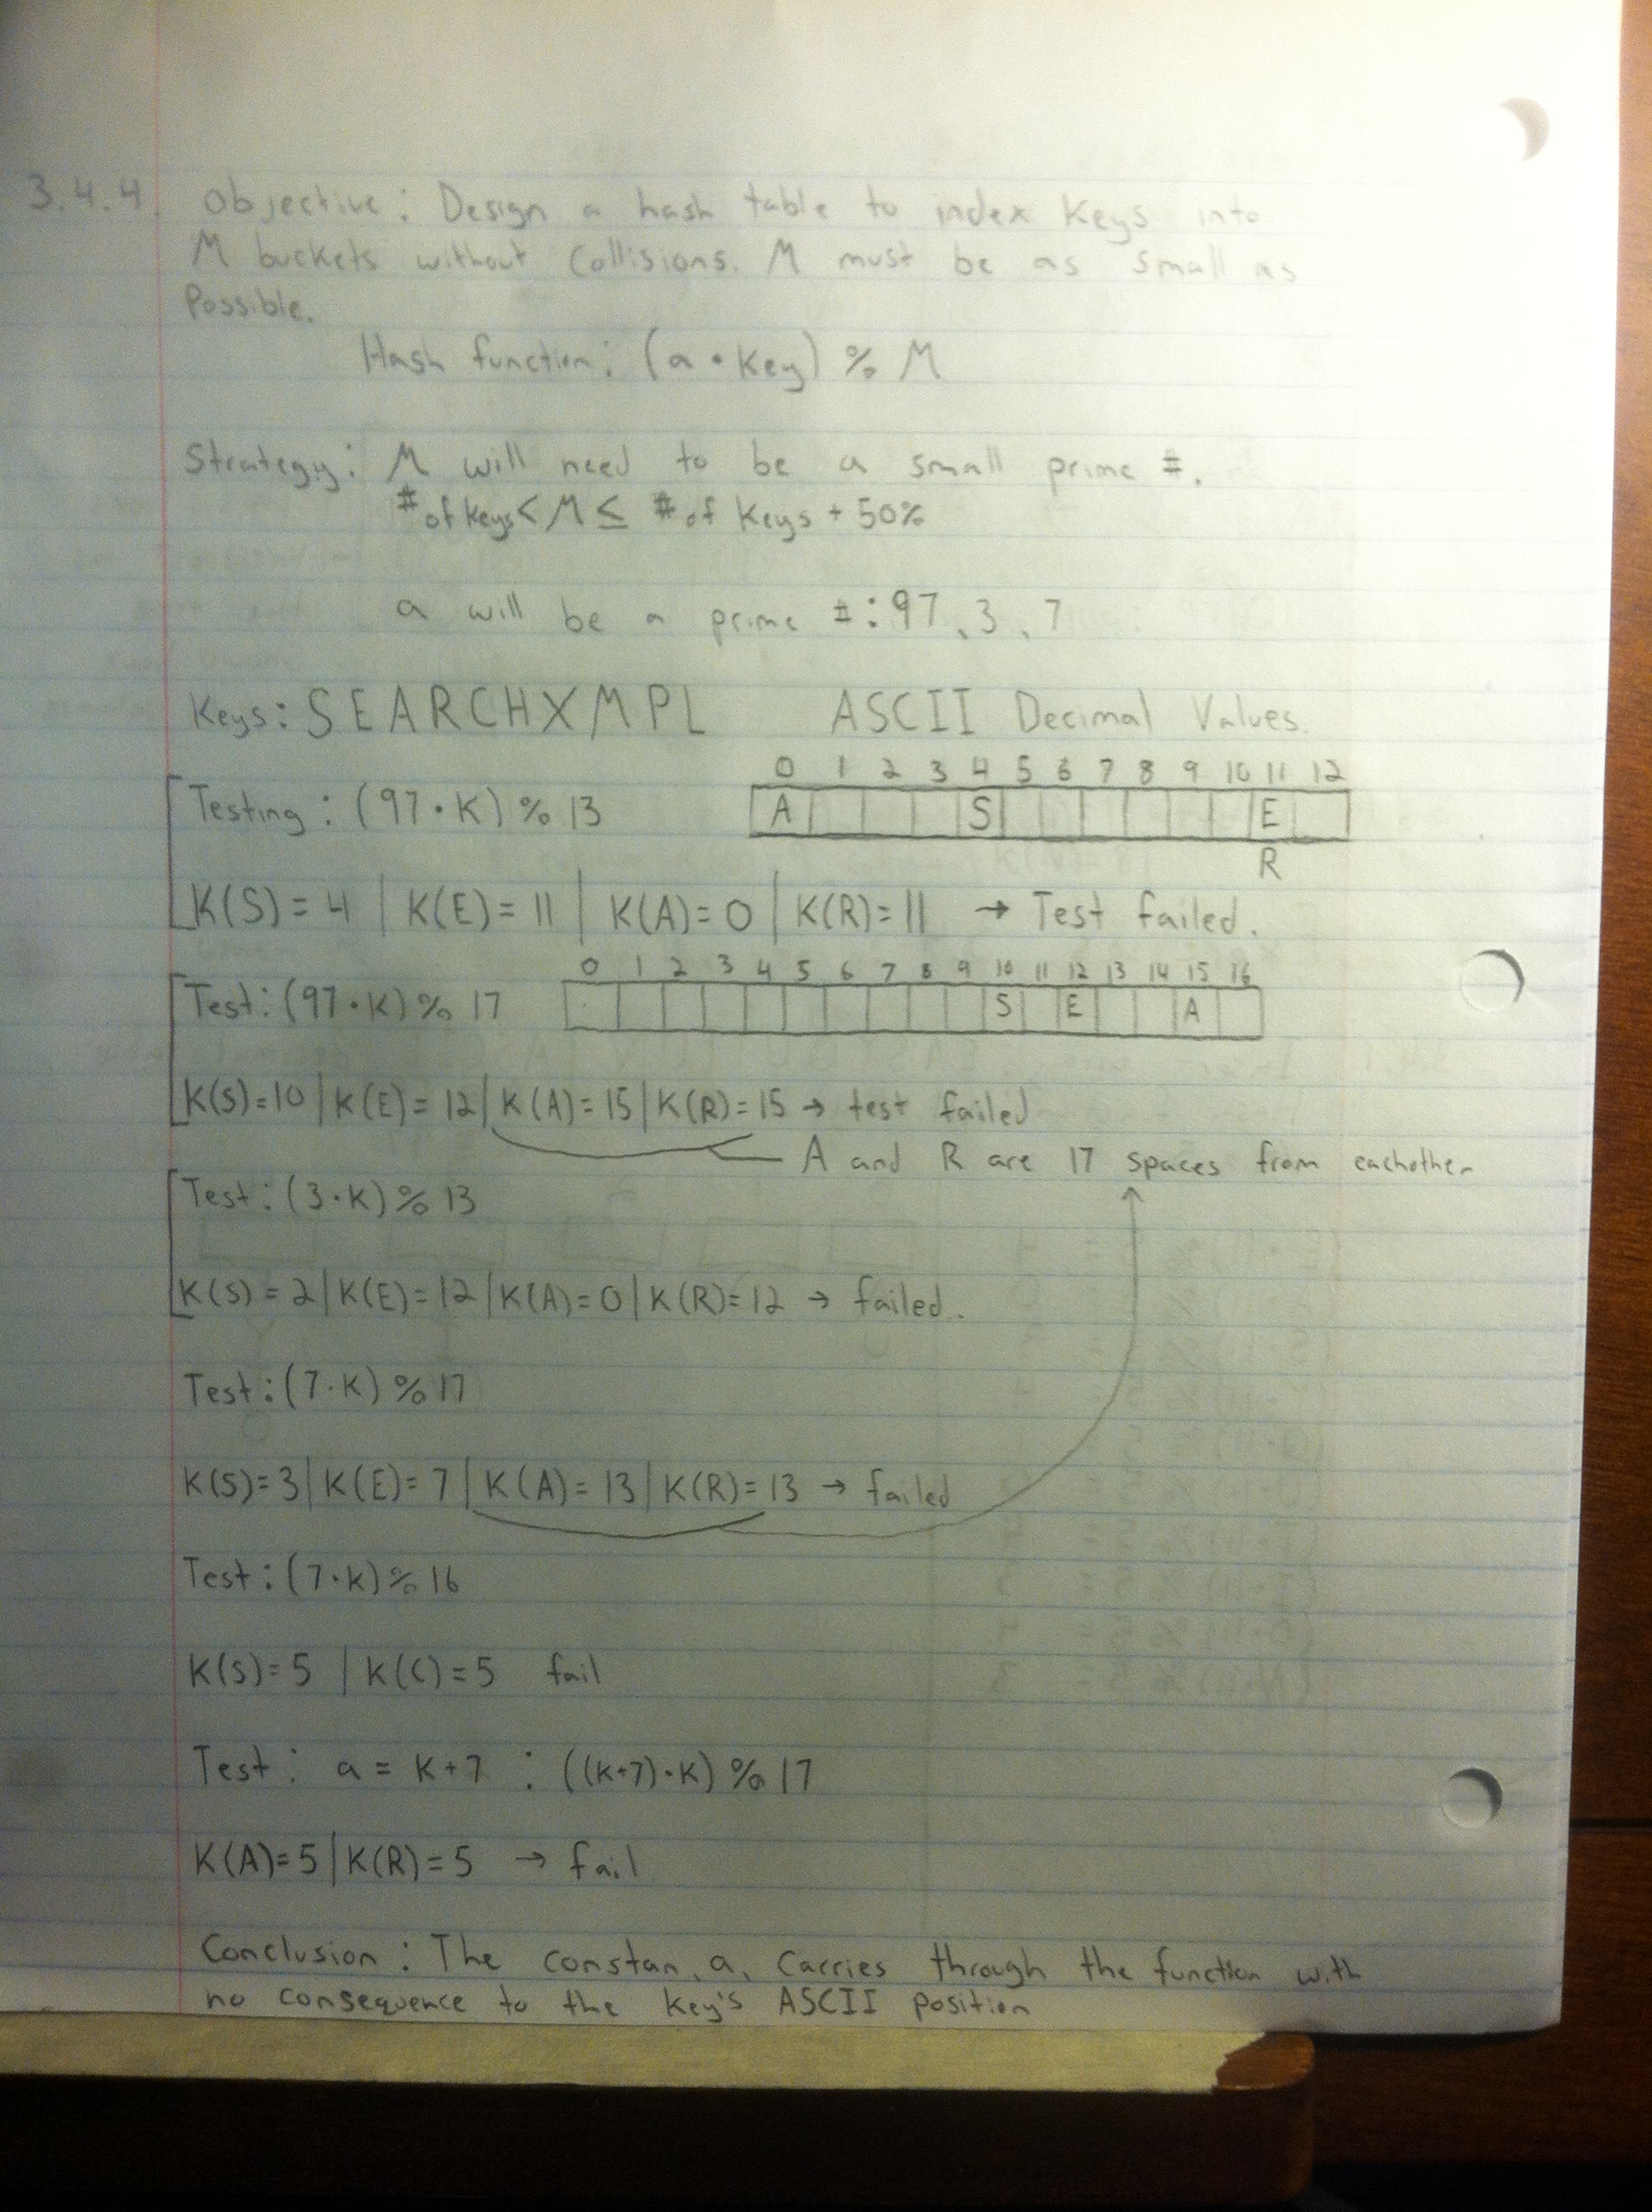 3.4.4. Objective: Design a hash table to index Keys into
M buckets without Collisions. M must be as small as
Possible.
Hash function: (a • Key) % M
Strategy: M will need to be a small prime #.
# of Keys < M ≤ # of Keys + 50%
a will be a prime #: 97, 3, 7
Keys: S E A R C H X M P L ASCII Decimal Values.
0 1 2 3 4 5 6 7 8 9 10 11 12
Testing: (97 • K) % 13 A S E
R
K(S) = 4 | K(E) = 11 | K(A) = 0 | K(R) = 11 → Test failed.
0 1 2 3 4 5 6 7 8 9 10 11 12 13 14 15 16
Test: (97 • K) % 17 S E A
K(S) = 10 | K(E) = 12 | K(A) = 15 | K(R) = 15 → test failed
A and R are 17 spaces from eachother
Test: (3 • K) % 13
K(S) = 2 | K(E) = 12 | K(A) = 0 | K(R) = 12 → failed.
Test: (7 • K) % 17
K(S) = 3 | K(E) = 7 | K(A) = 13 | K(R) = 13 → failed
Test: (7 • K) % 16
K(S) = 5 | K(C) = 5 fail
Test: a = K+7 : ((K+7) • K) % 17
K(A) = 5 | K(R) = 5 → fail
Conclusion: The constan, a, Carries through the function with
no consequence to the Key's ASCII position